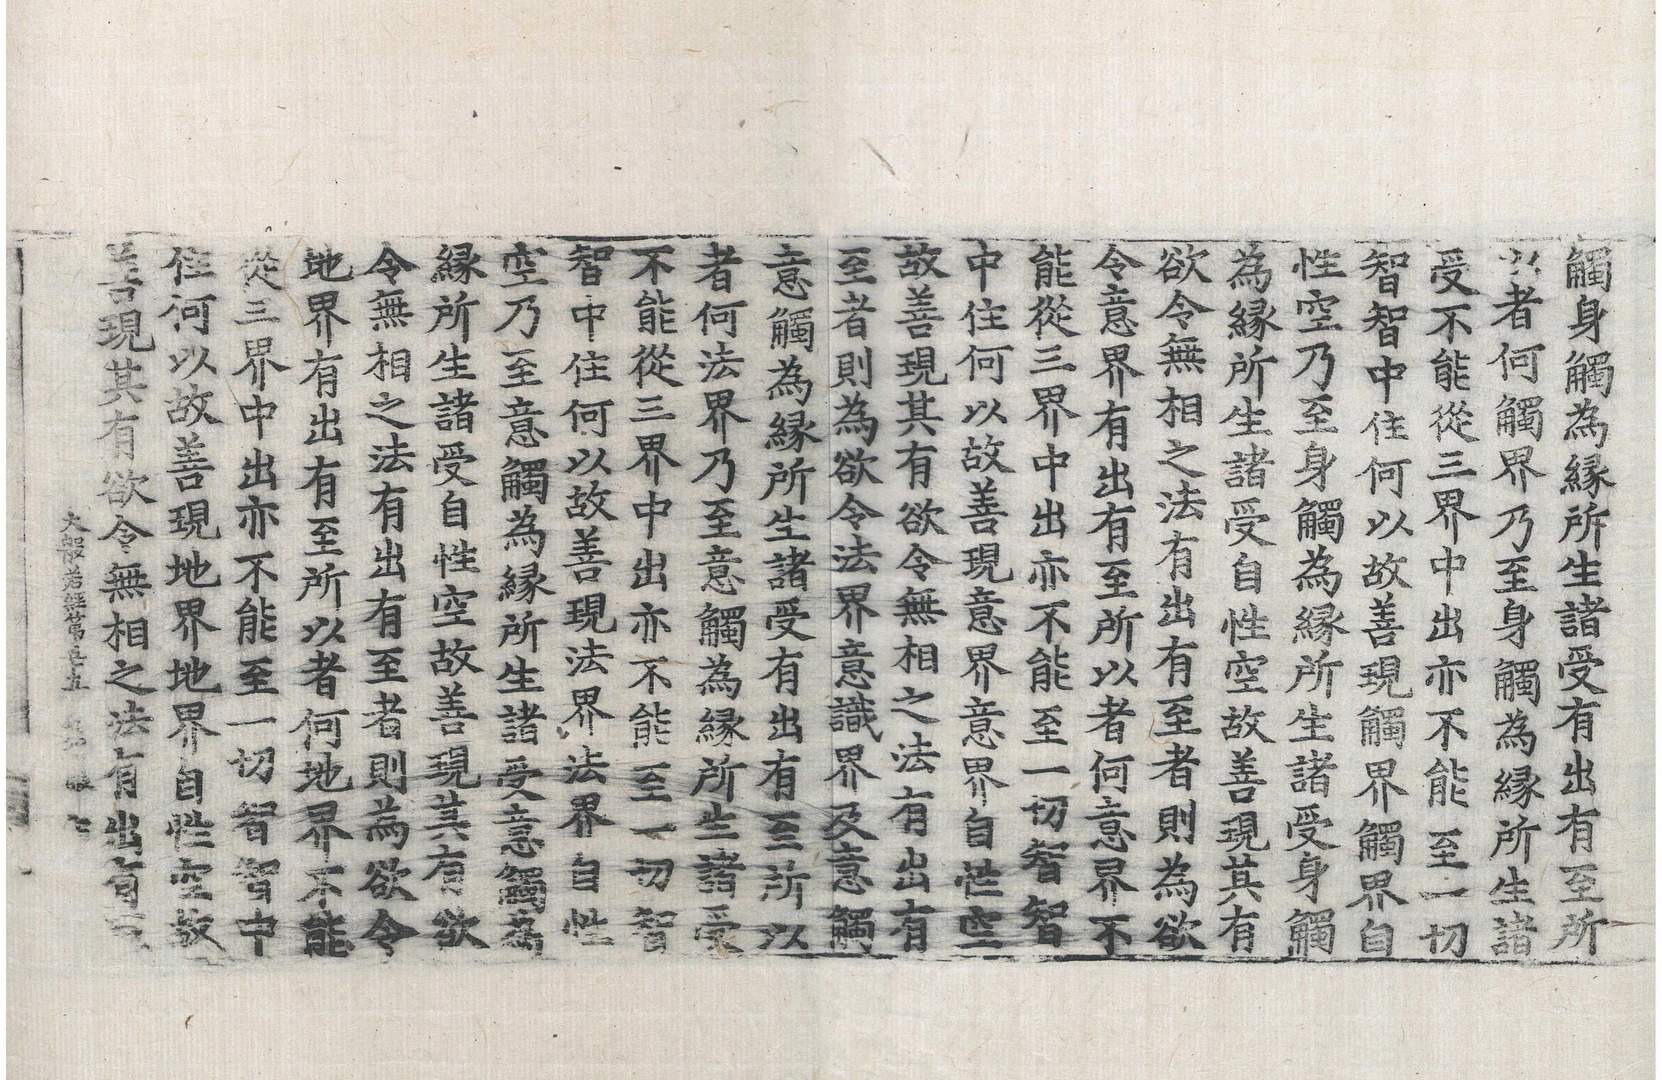 觸身觸為緣所生諸受有出有至所
以者何觸界乃至身觸為緣所生諸
受不能從三界中出亦不能至一切
智智中住何以故善現觸界觸界自
性空乃至身觸為緣所生諸受身觸
為緣所生諸受自性空故善現其有
欲令無相之法有出有至者則為欲
令意界有出有至所以者何意界不
能從三界中出亦不能至一切智智
中住何以故善現意界意界自性空
故善現其有欲令無相之法有出有
至者則為欲令法界意識界及意觸
意觸為緣所生諸受有出有至所以
者何法界乃至意觸為緣所生諸受
不能從三界中出亦不能至一切智
智中住何以故善現法界法界自性
空乃至意觸為緣所生諸受意觸為
緣所生諸受自性空故善現其有欲
令無相之法有出有至者則為欲令
地界有出有至所以者何地界不能
從三界中出亦不能至一切智智中
住何以故善現地界地界自性空故
善現其有欲令無相之法有出有至
大般若經第五